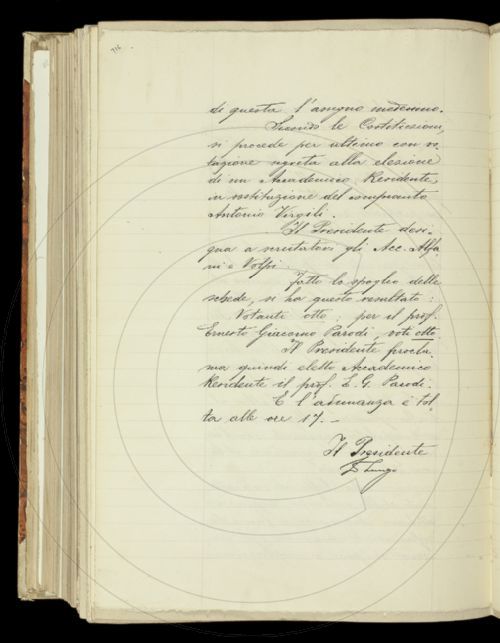 716
di questa l'assegno medesimo.
Secondo le Costituzioni,
si procede per ultimo con vo-
tazione segreta alla elezione
di un Accademico Residente,
in sostituzione del compianto
Antonio Virgili.
Il Presidente desi-
gna a scrutatori gli Acc. Alfa-
ni e Volpi.
Fatto lo spoglio delle
schede, si ha questo resultato:
Votanti otto; per il prof.
Ernesto Giacomo Parodi, voti otto.
Il Presidente procla-
ma quindi eletto Accademico
Residente il prof. E. G. Parodi.
E l'adunanza è tol-
ta alle ore 17. –
Il Presidente